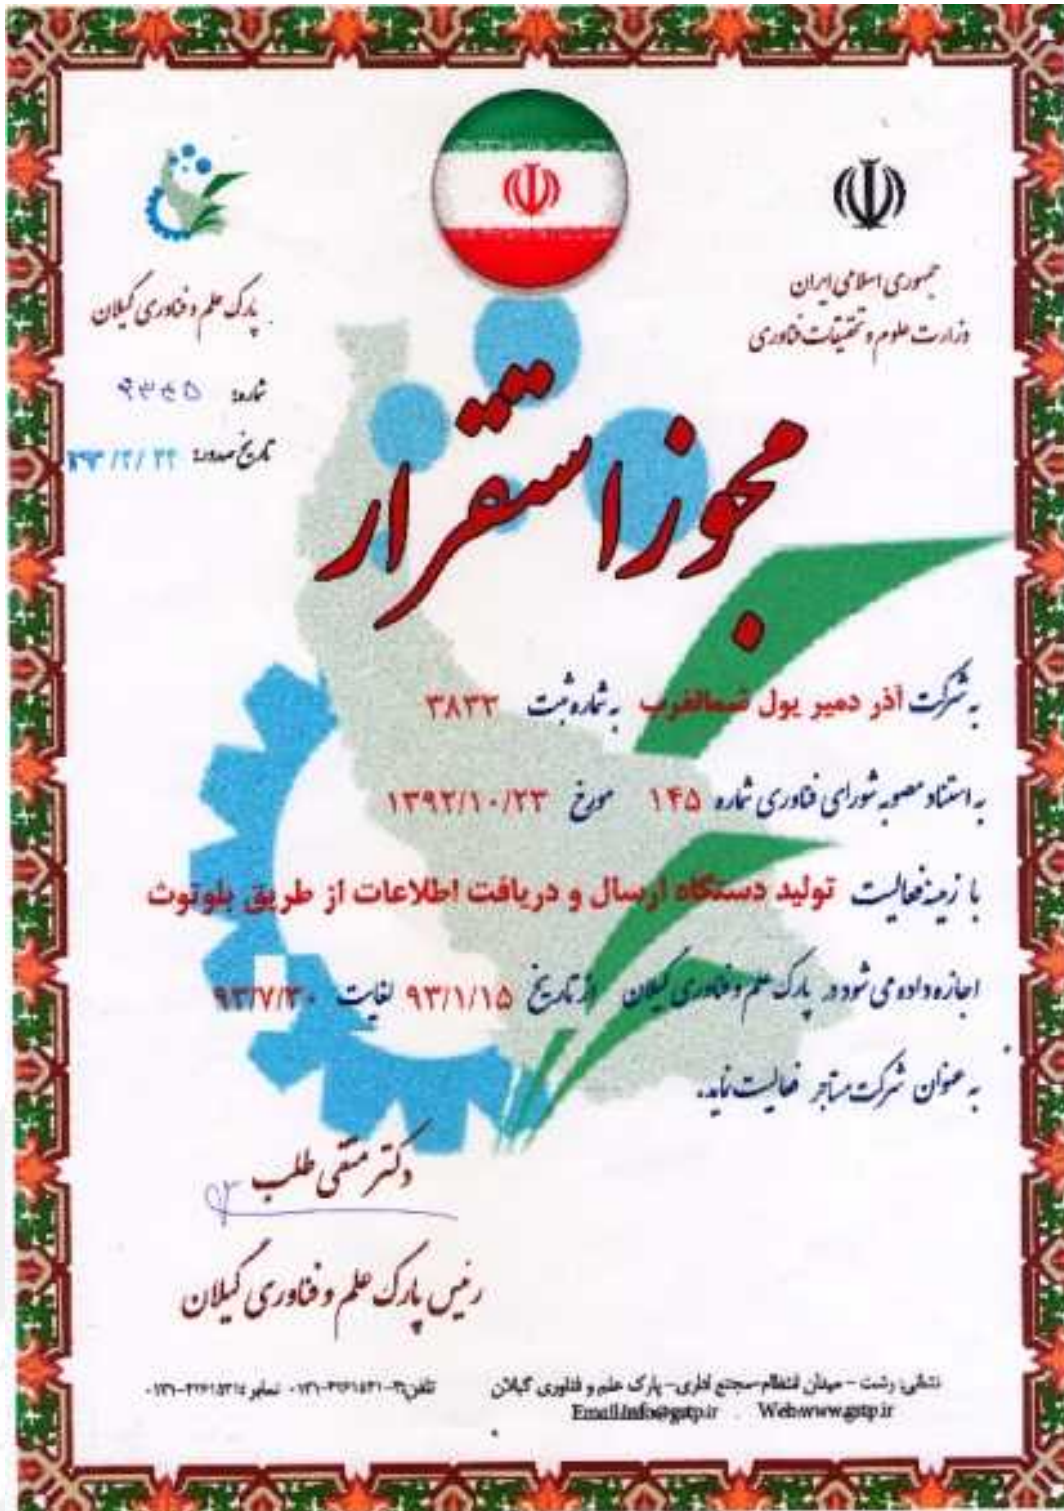 جمهوری اسلامی ایران
وزارت علوم و تحقیقات فناوری
پارک علم و فناوری گیلان
شماره:
تاریخ صدور:
مجوز استقرار
به شرکت آذر دمیر یول شمالغرب به شماره ثبت ۳۸۳۳
به استناد مصوبه شورای فناوری شماره ۱۴۵ مورخ ۱۳۹۲/۱۰/۲۳
با زمینه فعالیت تولید دستگاه ارسال و دریافت اطلاعات از طریق بلوتوث
اجازه داده می شود در پارک علم و فناوری گیلان از تاریخ ۹۳/۱/۱۵ لغایت ۹۳/۷/۳۰
به عنوان شرکت مستاجر فعالیت نماید.
دکتر متقی طلب
رئیس پارک علم و فناوری گیلان
نشانی: رشت - میدان انتظام - مجتمع اداری - پارک علم و فناوری گیلان تلفن: نمابر:
Email:info@gstp.ir Web:www.gstp.ir